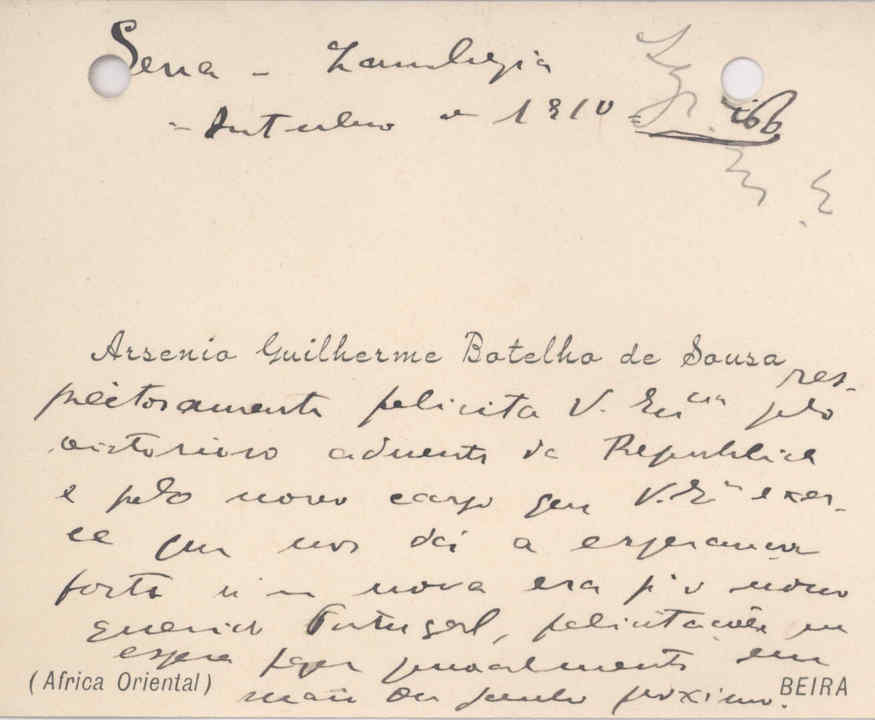 Sena - Zambezia
- Outubro de 1910 -
Arsenio Guilherme Botelho de Sousa res-
peitosamente felicita V. Exᶜⁱᵃ pelo
victorioso advento da Republica
e pelo novo cargo que V. Exª exer-
ce que nos dá a esperança
forte n'uma nova era p'o nosso
querido Portugal, felicitações que
espera fazer pessoalmente em
maio ou junho proximo.
(Africa Oriental) BEIRA